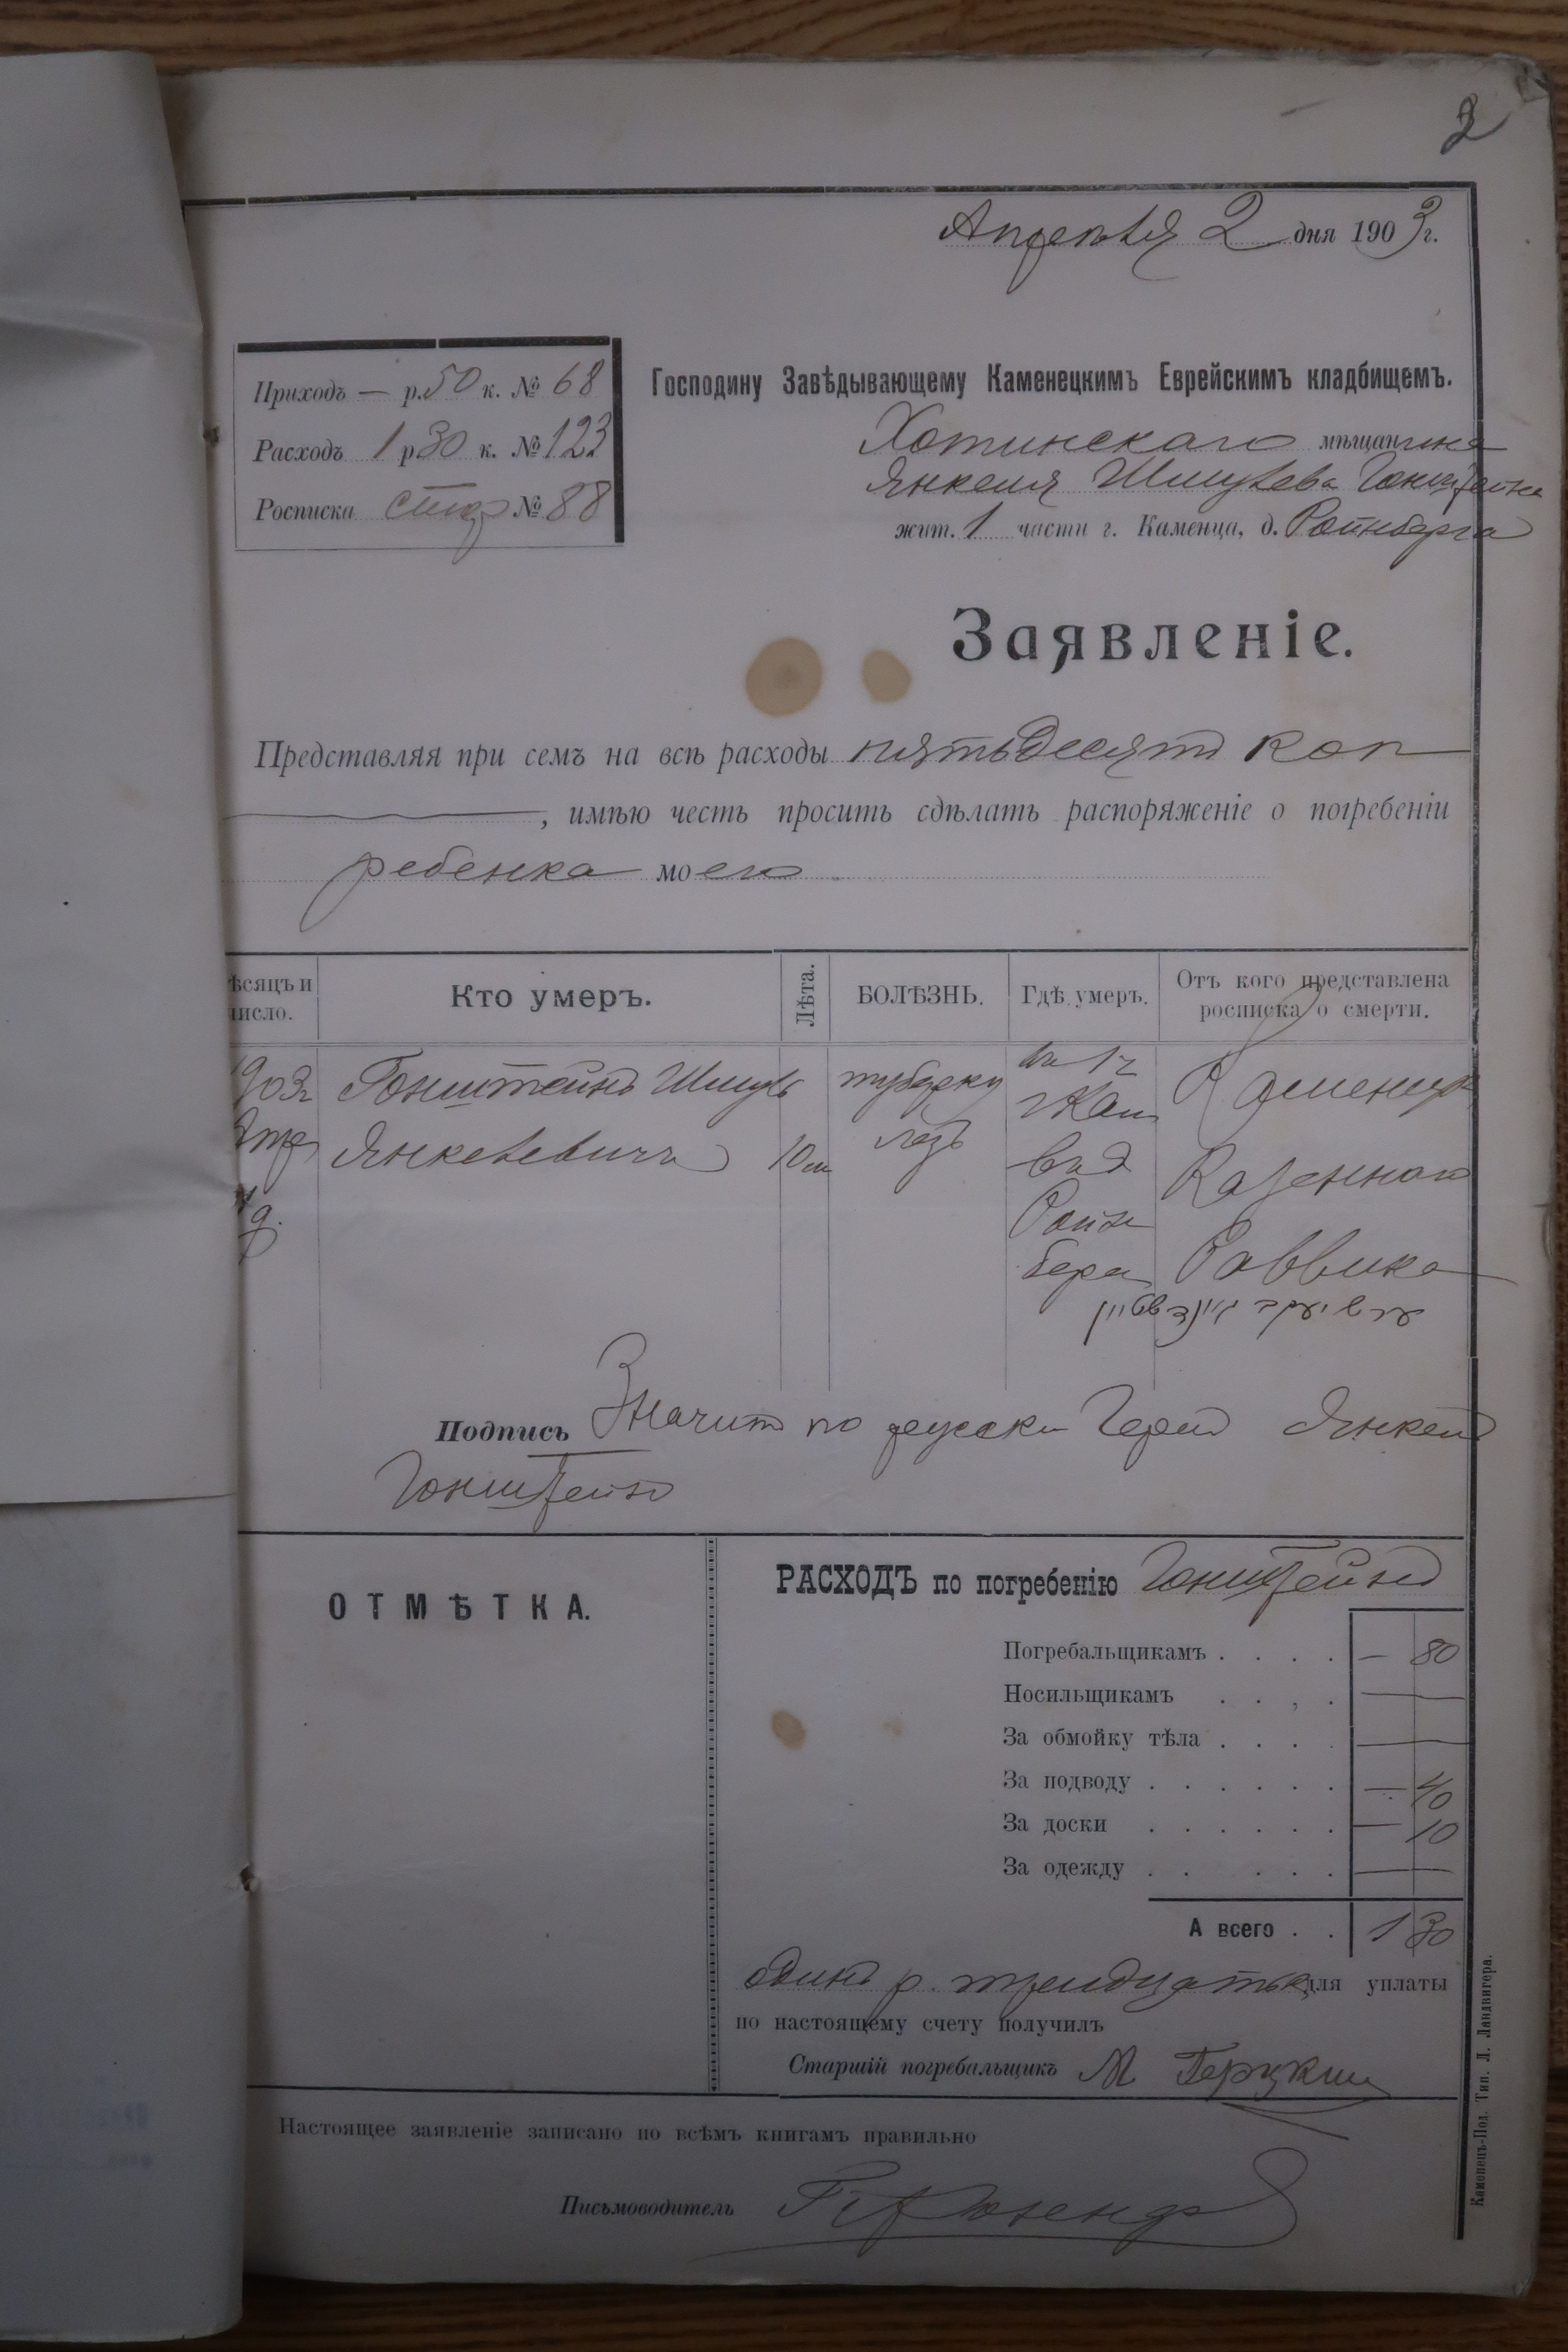 2
Апрѣля 2 дня 1903 г.
Приходъ — р. 50 к. № 68
Расходъ 1 р 30 к. № 123
Росписка № 88
Господину Завѣдывающему Каменецкимъ Еврейскимъ кладбищемъ.
Хотинскаго мѣщанина
Янкеля Шмулева Гонштейна
жит. 1 части г. Каменца, д. Ройнберга
Заявленіе.
Представляя при семъ на всѣ расходы пятьдесятъ коп
, имѣю честь просить сдѣлать распоряженіе о погребеніи
ребенка моего
ѣсяцъ и число.
Кто умеръ.
Лѣта.
БОЛѢЗНЬ.
Гдѣ умеръ.
Отъ кого представлена росписка о смерти.
903 г
Гонштейнъ Шмуль
Янкелевичъ
10 м
туберку
лезъ
въ 1 ч
г Кам
въ д
Ройн
берга
Каменецк
Казеннаго
Раввина
Подпись Значитъ по русски Янкель
Гонштейнъ
ОТМѢТКА.
РАСХОДЪ по погребенію Гонштейнъ
Погребальщикамъ . . . . — 80
Носильщикамъ . . , . —
За обмойку тѣла . . . . —
За подводу . . . . . . — 40
За доски . . . . . . — 10
За одежду . . . . . —
А всего . . 1 30
одинъ р. тридцать к для уплаты
по настоящему счету получилъ
Старшій погребальщикъ М
Настоящее заявленіе записано по всѣмъ книгамъ правильно
Письмоводитель
Каменецъ-Под. Тип. Л. Ландвигера.